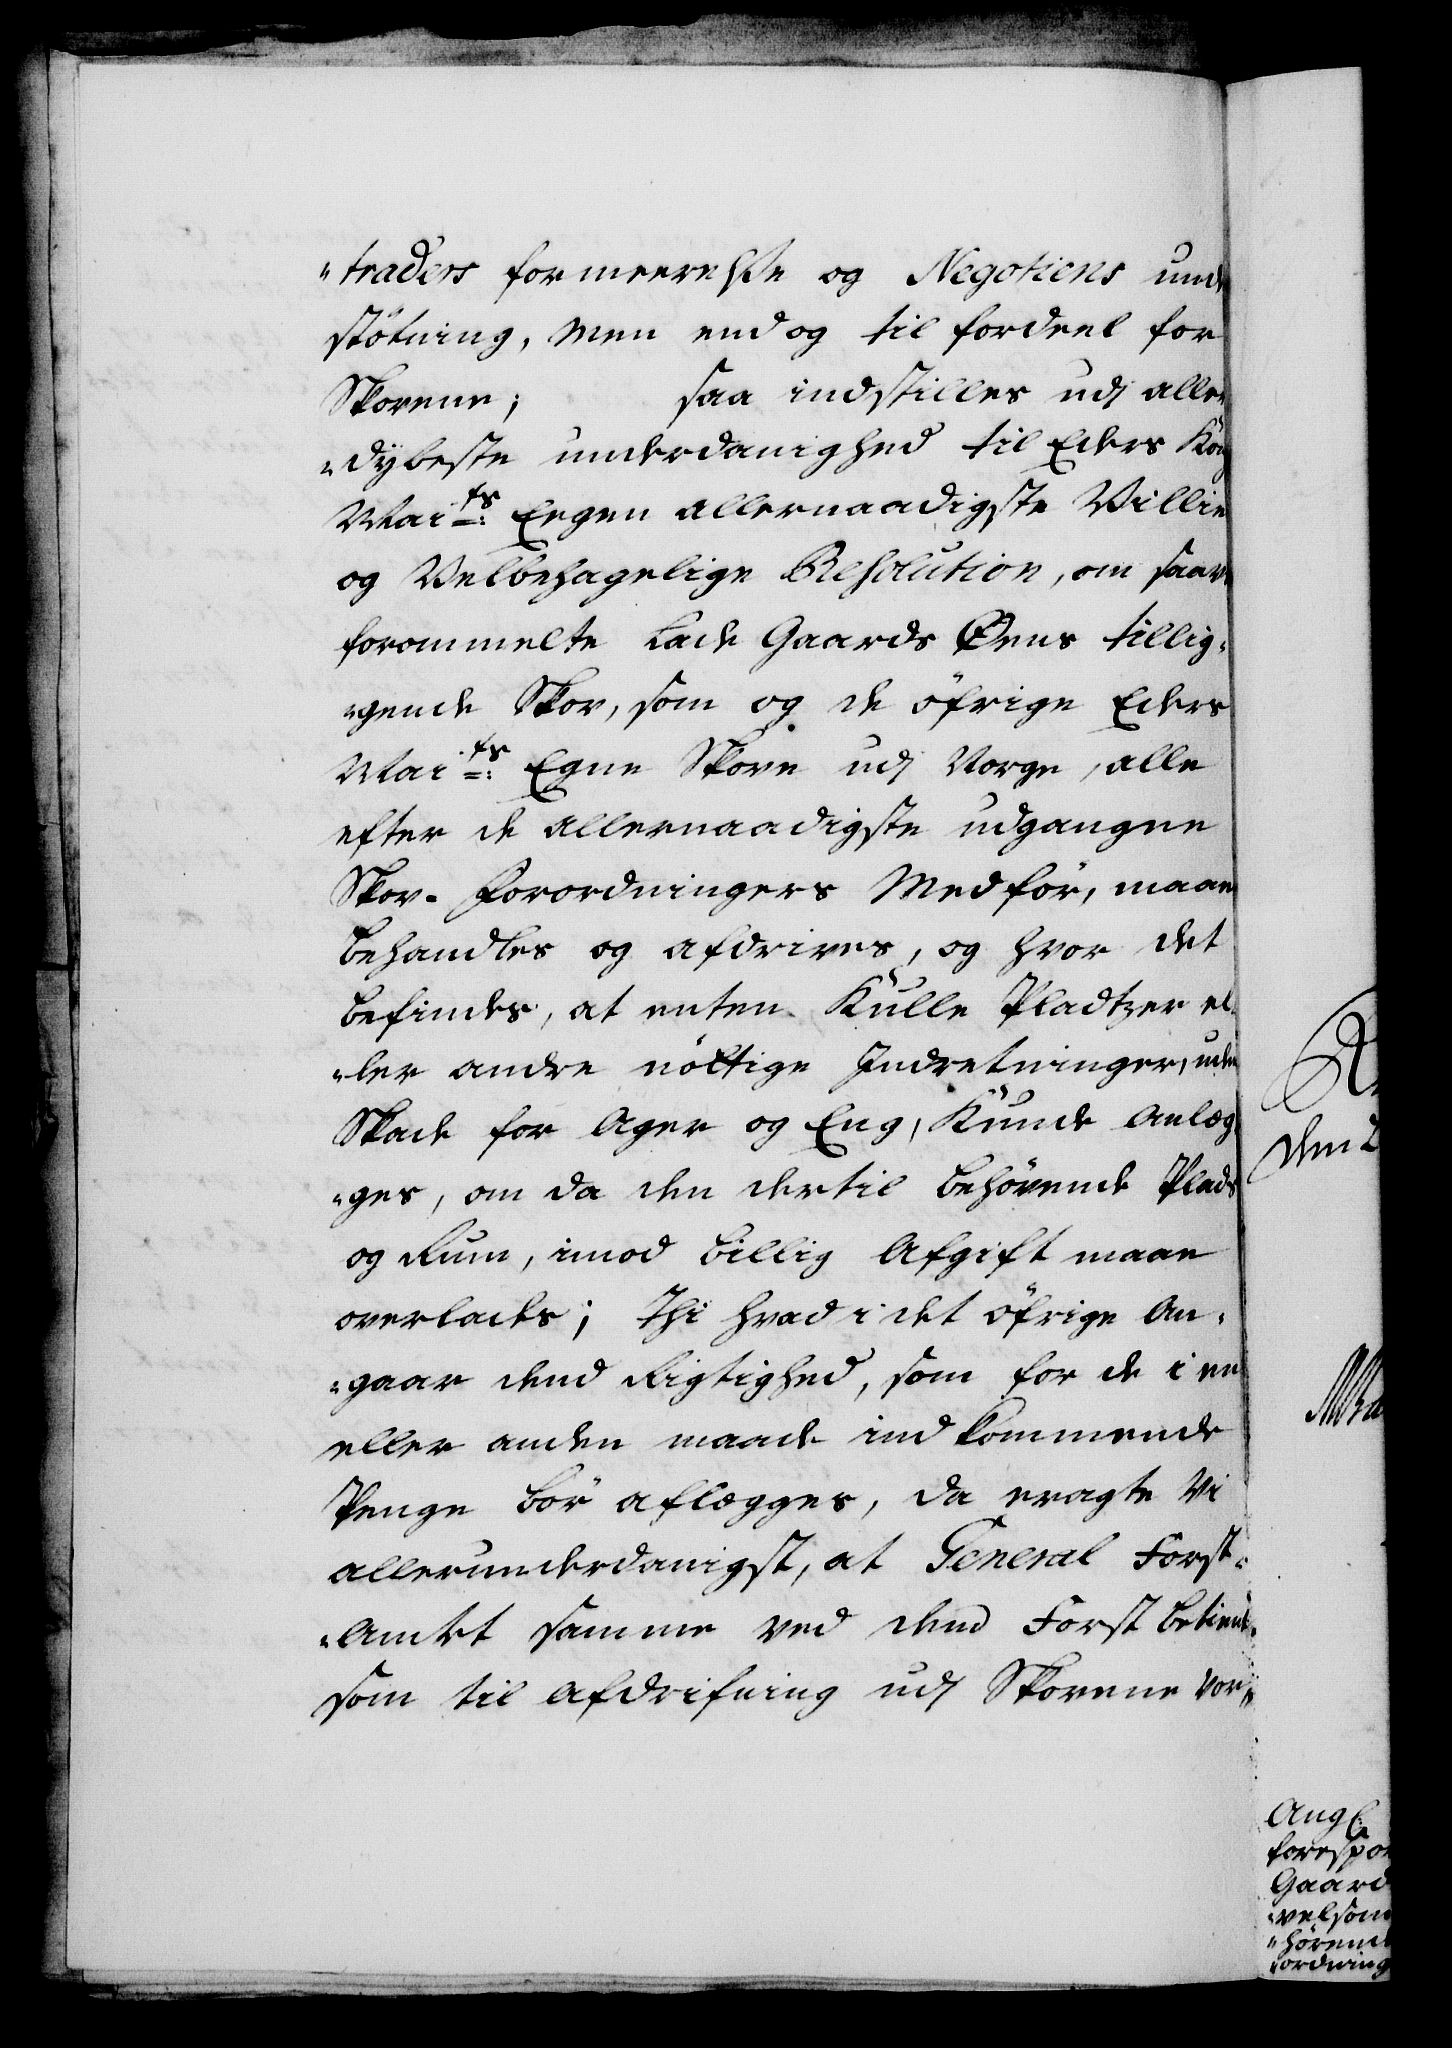 "traders formeerelse og Negotiens und
støtning, Men end og til fordeel for
Skovene; saa indstilles udj aller
"dybeste underdanighed til Eders Kong
Mai ts: Eegen allernaadigste Villie
og Velbehagelige Resolution, om saavel
forommelte Lade Gaards Øens tillig,
"gende Skov, som og de öfrige Eders
Mai ts: Egne Skove udj Norge, alle
efter de allernaadigste udgangne
Skov- Forordningers Medför, maae
behandles og afdrives, og hvor det
befindes, at enten Kulle Pladtzer el,
"ler andre nöttige Indretninger, uden
Skade for Ager og Eng, Kunde Anlæg,
"ges, om da den dertil behövende Plads
og Rum, imod billig Afgift maae
overlades; Thi hvad i det öfrige An,
"gaar dend Rigtighed, som for de i en
eller anden maade ind kommende
Penge bör aflægges, da eragte Vi
allerunderdanigst, at General Forst-
"Amtet samme ved dend Forst betient,
som til Afdrifning udj Skovene vor,
den
Ang
forespör
Gaard
"velsom
"hörend
ordning